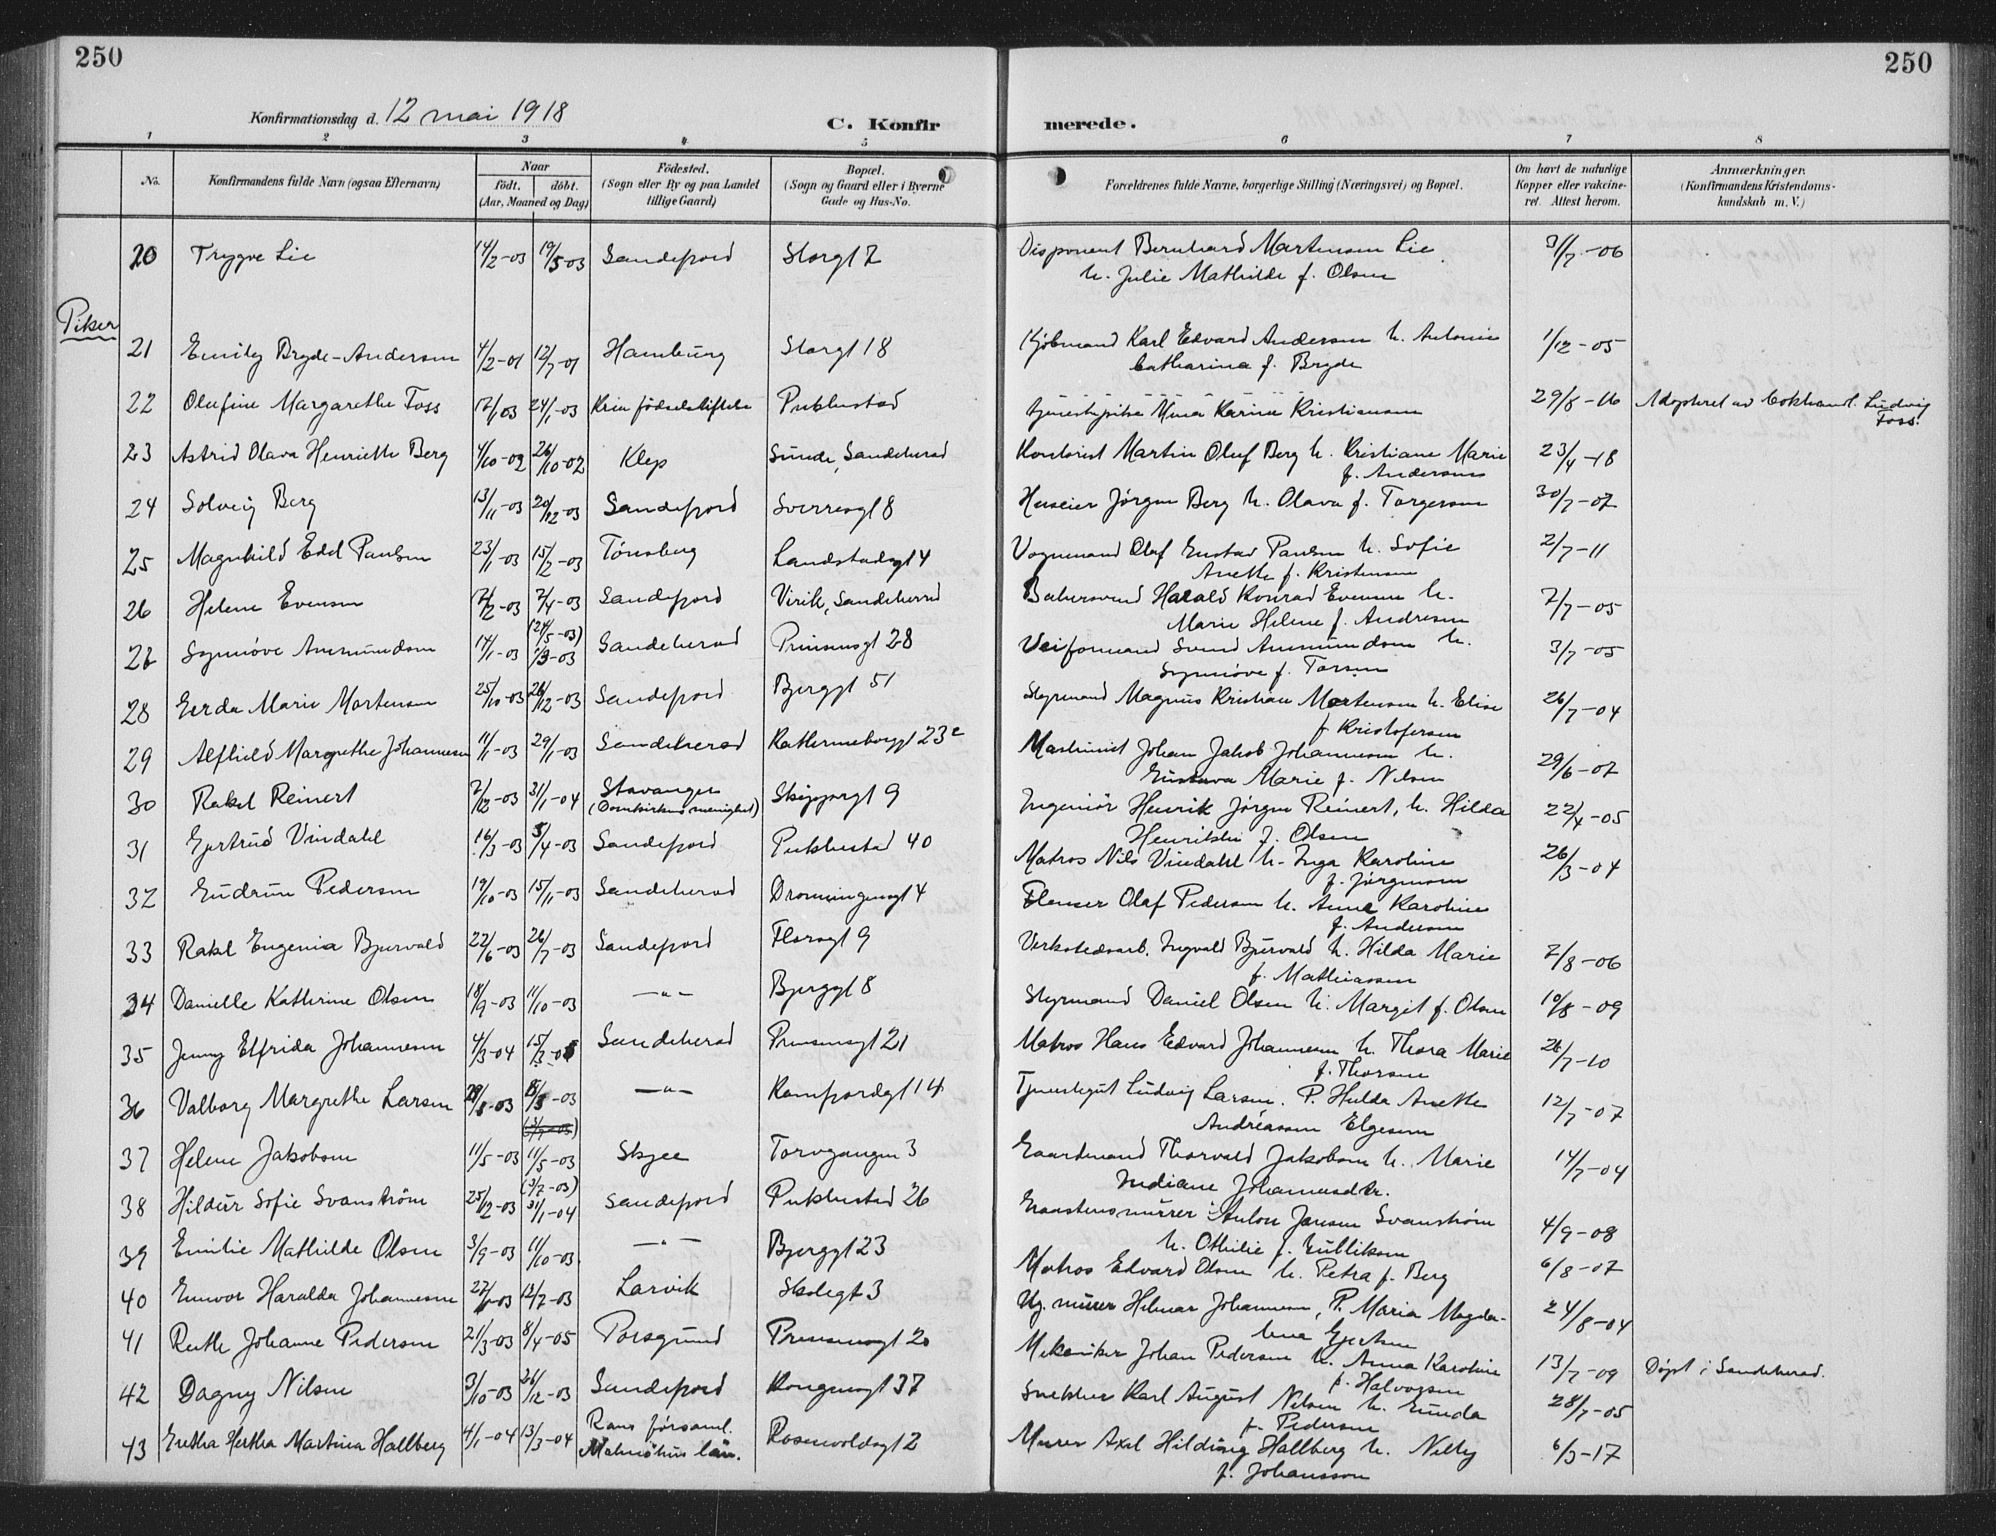 250
250
Konfirmationsdag d. 12 mai 1918
C. Konfir
merede.
1 2 3 4 5 6 7 8
No. Konfirmandens fulde Navn (ogsaa Efternavn) Naar født. døbt. (Aar, Maaned og Dag) Fødested. (Sogn eller By og paa Landet tillige Gaard) Bopæl. (Sogn og Gaard eller i Byerne Gade og Hus-No. Forældrenes fulde Navne, borgerlige Stilling (Næringsvei) og Bopæl. Om havt de naturlige Kopper eller vakcineret. Attest herom. Anmærkninger. (Konfirmandens Kristendomskundskab m. V.)
20 Trygve Lie 14/2-03 19/5-03 Sandefjord Storgt 7 Disponent Bernhard Martensen Lie 3/7-06
h. Julie Mathilde f. Olsen
Piker
21 Emily Bryde-Andersen 4/2-01 12/7-01 Hamburg Storgt 18 Kjøbmand Karl Edvard Andersen h. Antonie 1/12-05
Catharina f. Bryde
22 Olufine Margarethe Foss 24/1-03 Kria fødselsstiftelse Pukkestad Tjenestepike Mina Karine Kristiansen 29/8-16 Adopteret av Ludvig
Foss.
23 Astrid Olava Henriette Berg 4/10-02 26/10-02 Klep Sunde, Sandeherad Kontorist Martin Oluf Berg h. Kristiane Marie 23/4-18
f. Andersen
24 Solveig Berg 13/11-03 20/12-03 Sandefjord Sverresgt 8 Huseier Jørgen Berg h. Olava f. Torgersen 30/7-07
25 Magnhild Edel Paulsen 23/1-03 15/2-03 Tønsberg Landstadsgt 4 Vognmand Olaf Gustav Paulsen h. Sofie 2/7-11
Anette f. Kristensen
26 Helene Evensen 7/2-03 7/4-03 Sandefjord Virik, Sandeherred Bakersvend Harald Konrad Evensen h. 7/7-05
Marie Helene f. Andresen
(24/5-03)
27 Synnøve Ammundsen 14/1-03 1/3-03 Sandeherad Prinsensgt 28 Veiformand Svend Ammundsen h. 3/7-05
Synnøve f. Torsen
28 Gerda Marie Martensen 25/10-03 26/12-03 Sandefjord Bjerggt 51 Styrmand Magnus Kristian Martensen h. Elise 26/7-04
f. Kristofersen
29 Alfhild Margrethe Johannesen 11/1-03 29/1-03 Sandeherad Katherineborggt 23c Maskinist Johan Jakob Johannesen h. 29/6-07
Gustava Marie f. Nilsen
30 Rakel Reinert 7/12-03 31/1-04 Stavanger Skippergt 9 Ingeniør Henrik Jørgen Reinert, h. Hilda 22/4-05
(Domkirkens menighet) f. Olsen
31 Gjertrud Vindahl 16/3-03 5/4-03 Sandefjord Pukkestad 40 Matros Nils Vindahl h. Inga Karoline 26/3-04
f. Jørgensen
32 Gudrun Pedersen 19/10-03 15/11-03 Sandeherad Dronningensgt 4 Flenser Olaf Pedersen h. Anna Karoline
f. Andersen
33 Rakel Eugenia Bjurvald 22/6-03 26/7-03 Sandefjord Florsgt 9 Verkstedsarb. Ingvald Bjurvald h. Hilda Marie 7/8-06
f. Mathiassen
34 Danielle Kathrine Olsen 18/9-03 11/10-03 —"— Bjerggt 8 Styrmand Daniel Olsen h. Margit f. Olsen 10/8-09
35 Jenny Elfrida Johannesen 4/3-04 Sandeherad Prinsensgt 21 Matros Hans Edvard Johannesen h. Thora Marie 26/7-10
f. Thorsen
36 Valborg Margrethe Larsen —"— Kamfjordgt 14 Tjenestegut Ludvig Larsen. P. Hulda Anette 12/7-07
Andréassen Elgesem
37 Helene Jakobsen 11/5-03 11/5-03 Skjee Torvgangen 3 Gaardmand Thorvald Jakobsen h. Marie 14/7-04
(3/7-03) Indiane Johannesdtr.
38 Hildur Sofie Svanstrøm 25/12-03 31/1-04 Sandefjord Pukkestad 26 Graastensmurer Anton Jensen Svanstrøm 4/9-08
h. Othilie f. Gulliksen
39 Emilie Mathilde Olsen 3/9-03 11/10-03 —"— Bjerggt 23 Matros Edvard Olsen h. Petra f. Berg 6/8-07
40 Gunvor Haralda Johannesen 12/7-03 Larvik Skolegt 3 Ug. murer Hilmar Johannesen, P. Maria Magda- 24/8-04
lena Gjertsen
41 Ruth Johanne Pedersen 21/3-03 8/4-05 Porsgrund Prinsensgt 20 Mekaniker Johan Pedersen h. Anna Karoline 13/7-09 Døpt i Sandeherad.
f. Halvorsen
42 Dagny Nilsen 3/10-03 26/12-03 Sandefjord Kongensgt 37 Snekker Karl August Nilsen h. Gunda 28/7-05
f. Pedersen
43 Gretha Hertha Martina Hallberg 4/1-04 13/3-04 Rans församl. Rosenvoldsgt 2 Murer Axel Hilding Hallberg h. Nelly 6/3-17
Malmöhus län. f. Johansson